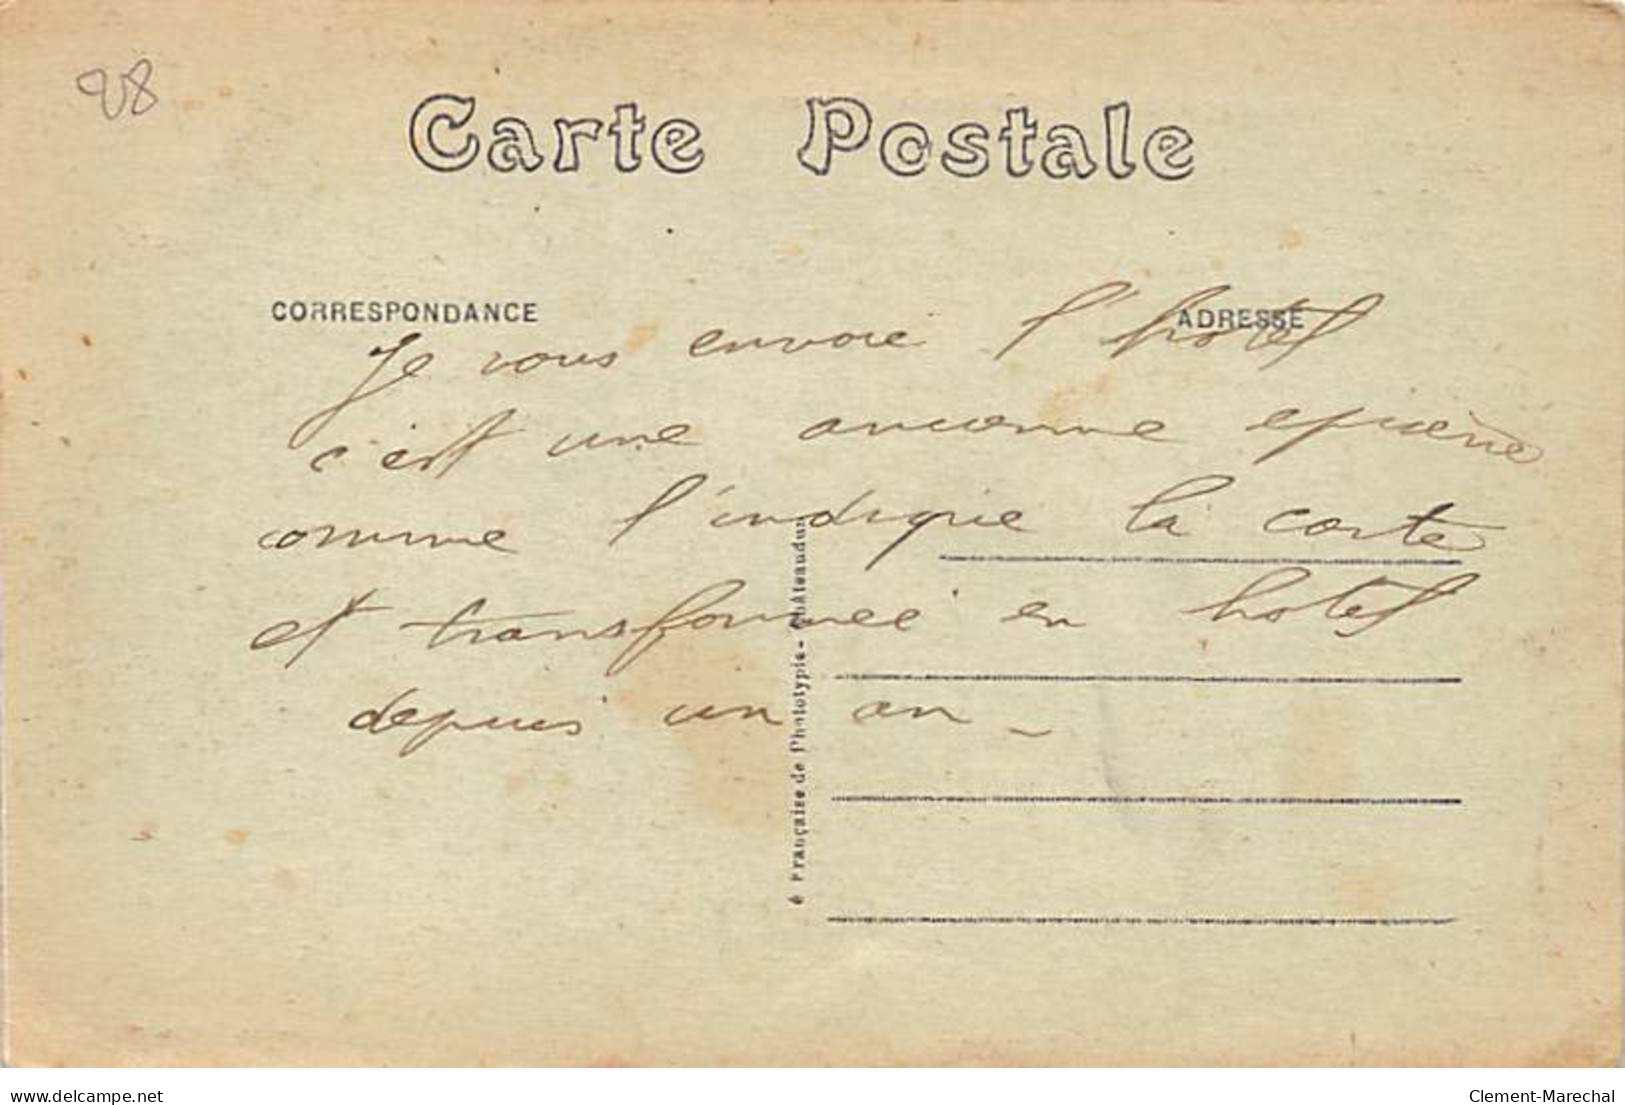 28
Carte Postale
CORRESPONDANCE
ADRESSE
Je vous envoie l'hotel
c'est une ancienne epicerie
comme l'indique la carte
et transformée en hotel
depuis un an –
é Française de Phototypie - Châteaudun
delcampe.net
Clement-Marechal